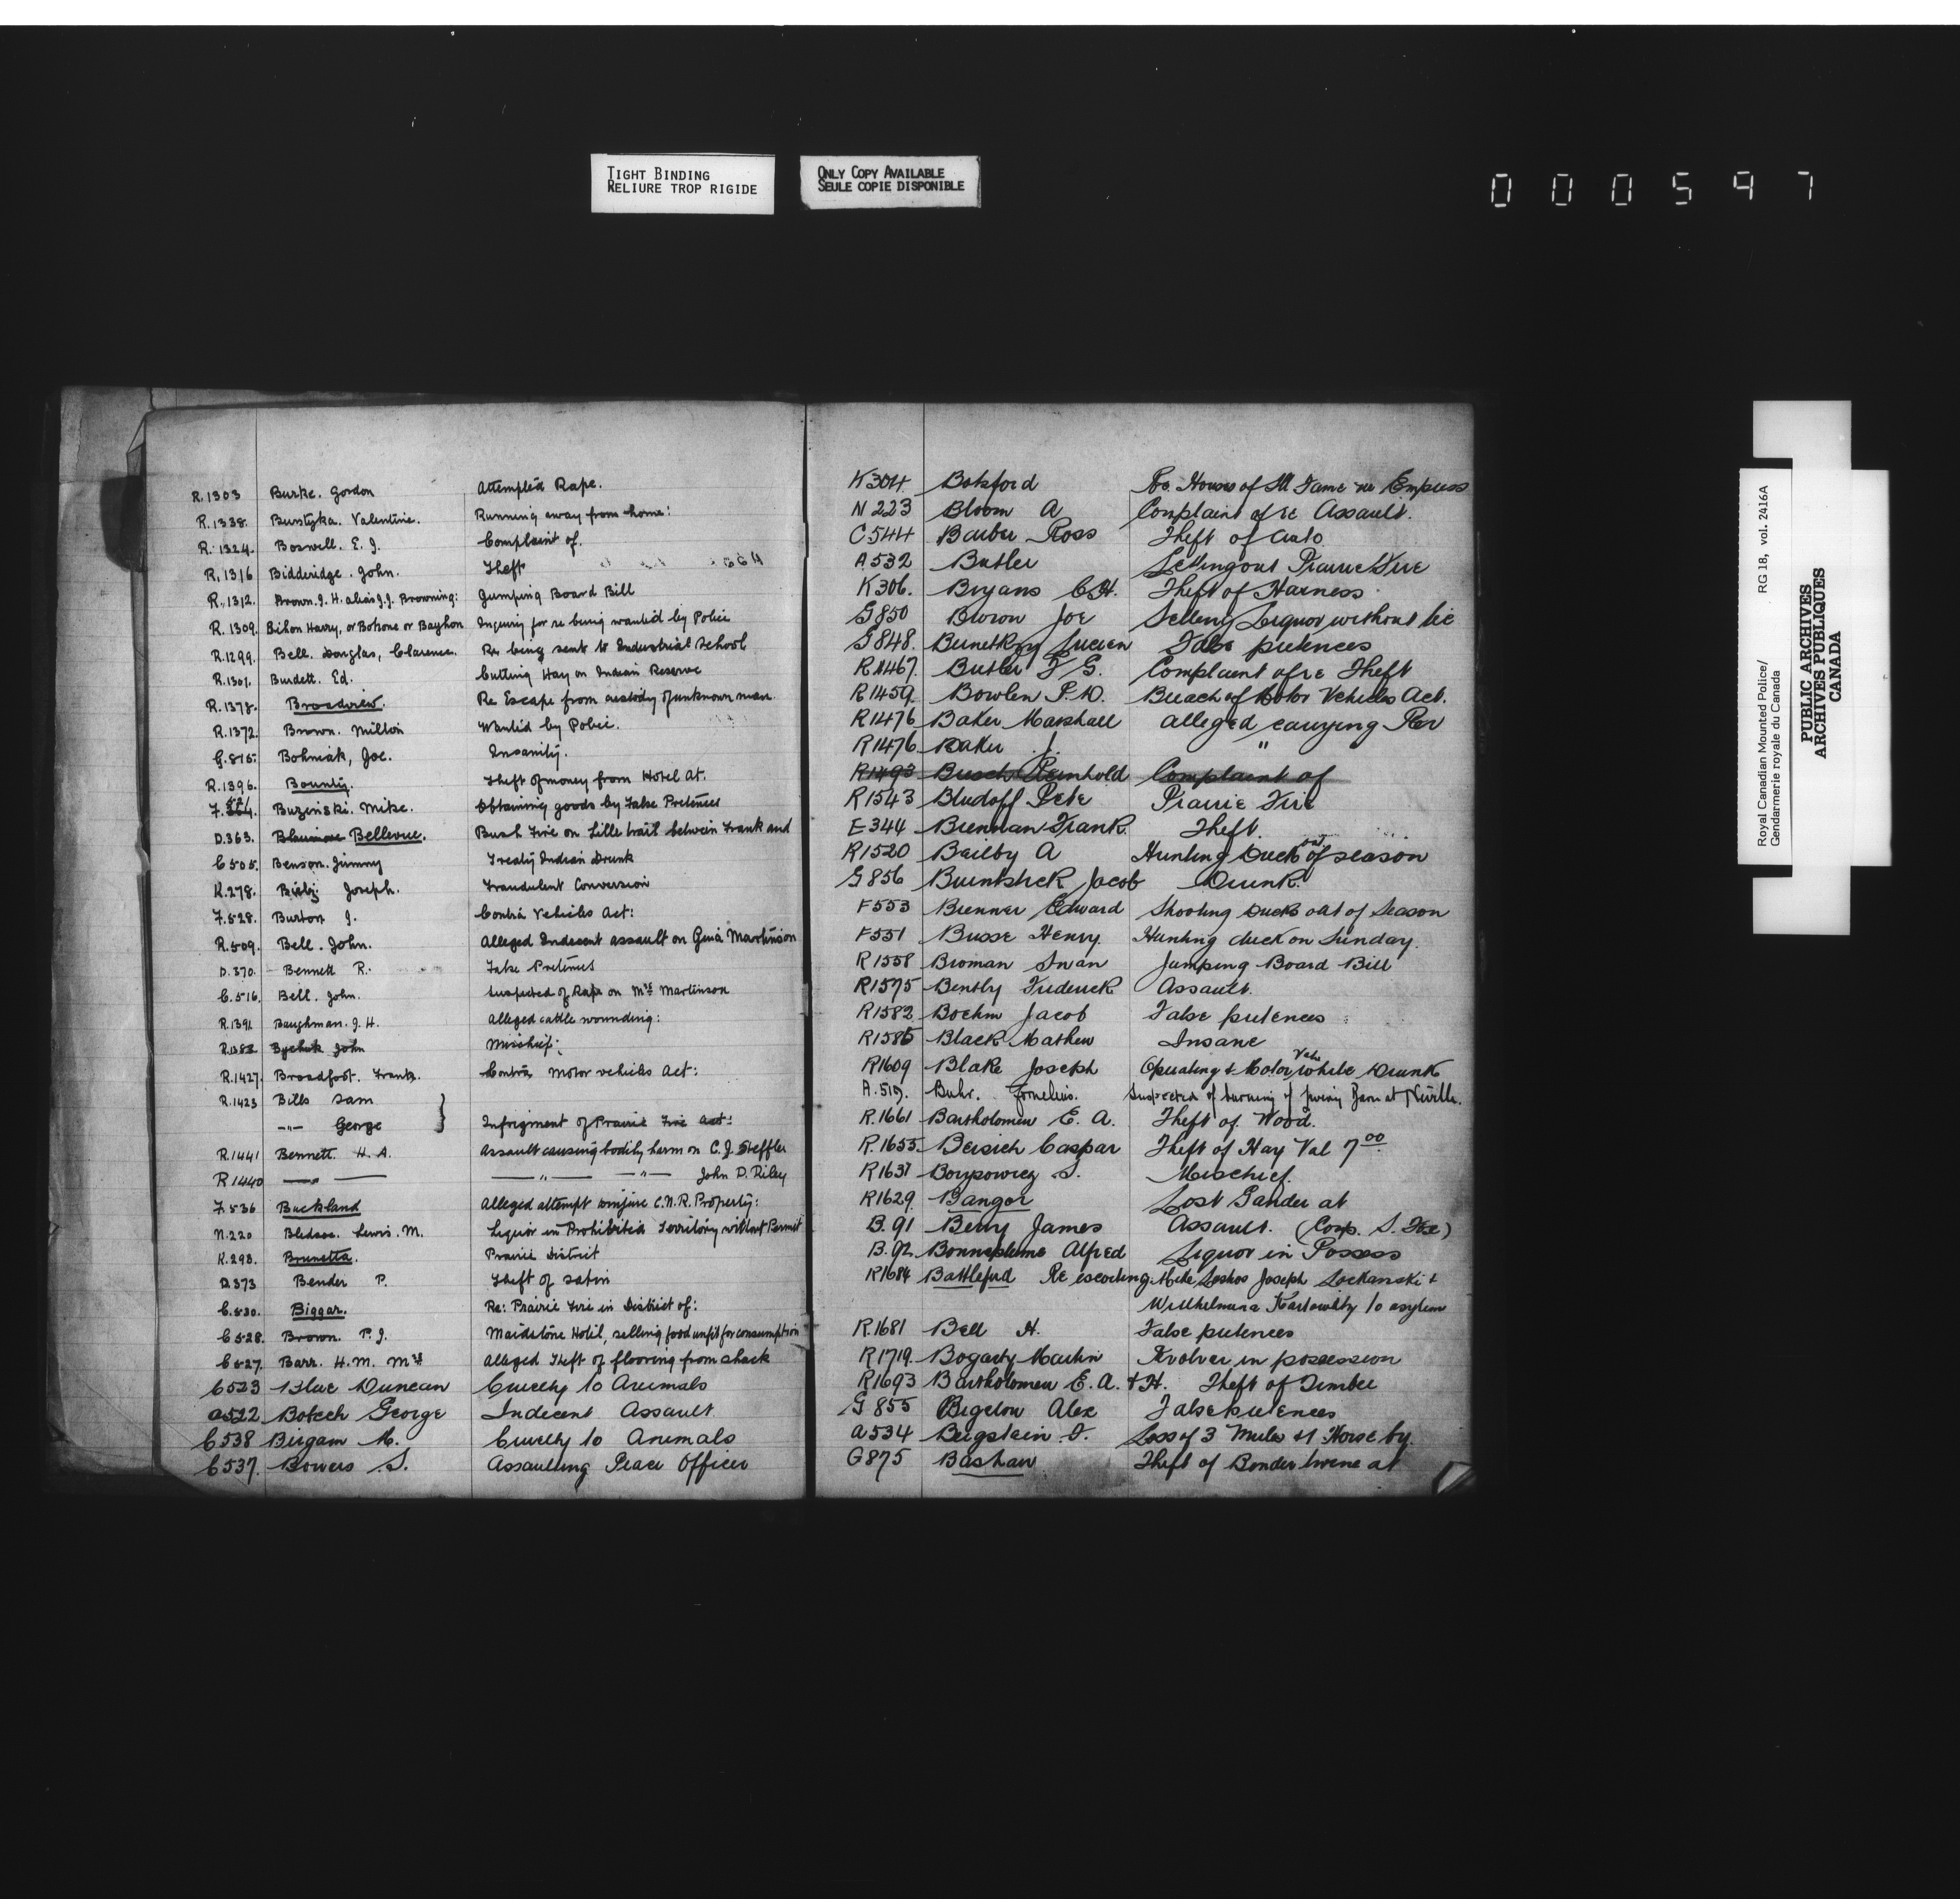 TIGHT BINDING
RELIURE TROP RIGIDE
ONLY COPY AVAILABLE
SEULE COPIE DISPONIBLE
000597
R.1303 Burke. Gordon Attempted Rape.
R.1338. Burstyka. Valentine. Running away from home:
R.1324. Boswell. E. J. Complaint of.
R.1316 Bidderidge. John. Theft
R.1312. Brown. J. H. alias J.J. Browning: Jumping Board Bill
R.1309. Bihon Harry, or Bohone or Bayhon Inquiry for re being wanted by Police
R.1299. Bell. Douglas, Clarence. Re. being sent to Industrial School
R.1301. Burdett. Ed. Cutting Hay on Indian Reserve
R.1378. Broadview. Re Escape from custody of unknown man
R.1372. Brown. Milton Wanted by Police.
G.815. Bohniak, Joe. Insanity.
R.1396. Bounty. Theft of money from Hotel at.
Buzinski. Mike. Obtaining goods by False Pretences
D.363. Bellevue. Bush Fire on Lille trail between Frank and
C505. Benson. Jimmy Treaty Indian Drunk
K.278. Joseph. Fraudulent Conversion
F.528. Burton J. Contra Vehicles Act:
R.509. Bell. John. Alleged Indecent assault on Gina Martinson
D.370. Bennett R. False Pretences
C.516. Bell. John. Suspected of Rape on Mrs Martinson
R.1391 Baughman. J. H. Alleged cattle wounding:
R.1382 Bychuk John Mischief:
R.1427. Broadfoot. Frank. Contra Motor vehicles Act:
R.1423 Bills Sam
-"- George Infrigment of Prairie Fire Act:
R.1441 Bennett. H. A. Assault causing bodily harm on C. J. Steffler
R1440 —"— —"— John D. Riley
F.536 Buckland Alleged attempt to injure C.N.R. Property:
N.220 Bledsoe. Lewis. M. Liquor in Prohibited Territory without Permit
K.293. Brunetta. Prairie District
D373 Bender P. Theft of satin
C.530. Biggar. Re: Prairie Fire in District of:
C528. Brown. P. J. Maidstone Hotel, selling food unfit for consumption
C527. Barr. H. M. Mrs Alleged Theft of flooring from shack
C523 Blue Duncan Cruelty to Animals
a522 Botech George Indecent Assault
C538 Birgam M. Cruelty to Animals
C537. Bowers S. Assaulting Peace Officer
K304 Botsford Re. House of Ill Fame re Empress
N 223 Bloom A Complaint of re Assault.
C544 Barber Ross Theft of auto
A532 Butler Setting out Prairie Fire
K306. Bryans C.H. Theft of Harness
G850 Joe Selling Liquor without lic
G848. Lucien False pretences
R1467. Butler F G. Complaint of re Theft
R1459. Bowlen P. D. Breach of Motor Vehicles Act.
R1476 Baker Marshall alleged carrying Rev
R1476 Baker J. "
R1493 Busch Reinhold Complaint of
R1543 Bludoff Pete Prairie Fire
E344 Brennan Frank. Theft.
R1520 Beilby A Hunting Duck out of season
G856 Jacob Drunk.
F553 Brenner Edward Shooting Ducks out of Season
F551 Busse Henry. Hunting duck on Sunday.
R1558 Broman Swan Jumping Board Bill
R1575 Bently Frederick Assault.
R1582 Boehm Jacob False pretences
R1585 Black Mathew Insane
R1609 Blake Joseph Operating a Motor Vehc while Drunk
A.519. Buhr. Cornelius. Suspected of burning of Barn at
R.1661 Bartholomew E. A. Theft of Wood.
R.1655 Beisich Caspar Theft of Hay Val 7.00
R1637 Boryowicz S. Mischief.
R1629 Bangor Lost Gander at
B.91 Berry James Assault. (Corp. S. Fox)
B.92 Bonneplume Alfred Liquor in Possess
R1684 Battleford Re escorting Mike Joseph Lockanski &
Wilhelmina to asylum
R.1681 Bell H. False pretences
R1719. Bogarty Martin Revolver in possession
R1693 Bartholomew E. A. & H. Theft of Timber
G855 Bigelow Alex False pretences
a534 Bergstein. I. Loss of 3 Mules & 1 Horse by.
G875 Bashaw Theft of Bonder twine at
Royal Canadian Mounted Police/ RG 18, vol. 2416A
Gendarmerie royale du Canada
PUBLIC ARCHIVES
ARCHIVES PUBLIQUES
CANADA